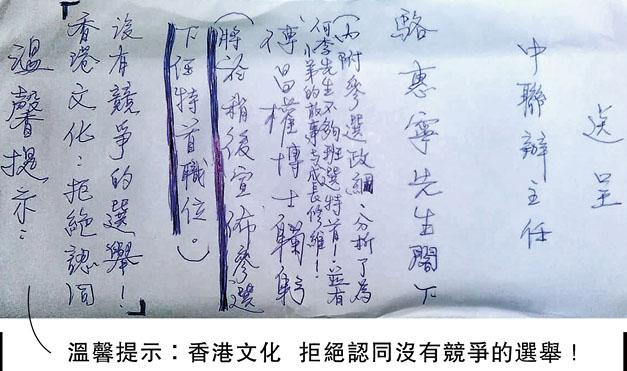 送呈
中聯辦主任
駱惠寧先生閣下
(內附參選政綱,分析了為
何李先生不夠班選特首!並有
小弟的故事与成長修維!)
傅昌權博士鞠躬
(將於稍後宣佈參選
下任特首職位。)
溫馨提示:
「香港文化:拒絕認同
沒有競爭的選舉!」
溫馨提示:香港文化 拒絕認同沒有競爭的選舉!